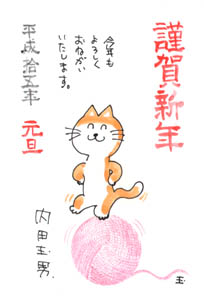 謹賀新年
今年も
よろしく
おねがい
いたします。
平成拾五年 元旦
内田玉男.
玉.